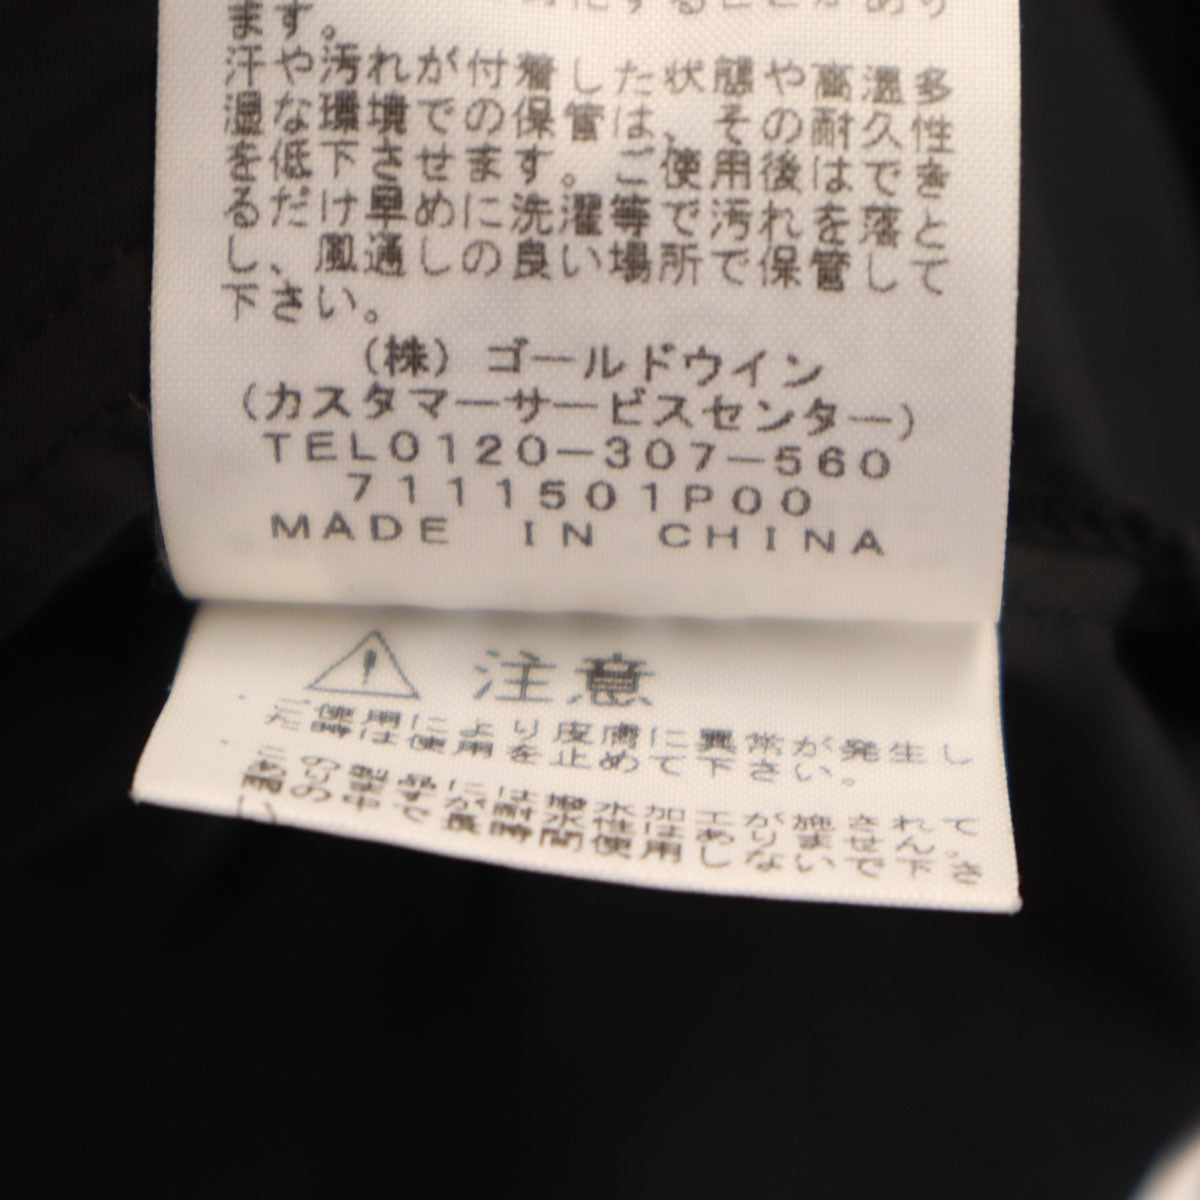 ます。
汗や汚れが付着した状態や高温多
湿な環境での保管は、その耐久性
を低下させます。ご使用後はできる
だけ早めに洗濯等で汚れを落とし、
風通しの良い場所で保管して
下さい。
(株)ゴールドウイン
(カスタマーサービスセンター)
TEL0120-307-560
7111501P00
MADE IN CHINA
注意
ご使用により皮膚に異常が発生し
た時は使用を止めて下さい。
この製品には撥水加工が施されて